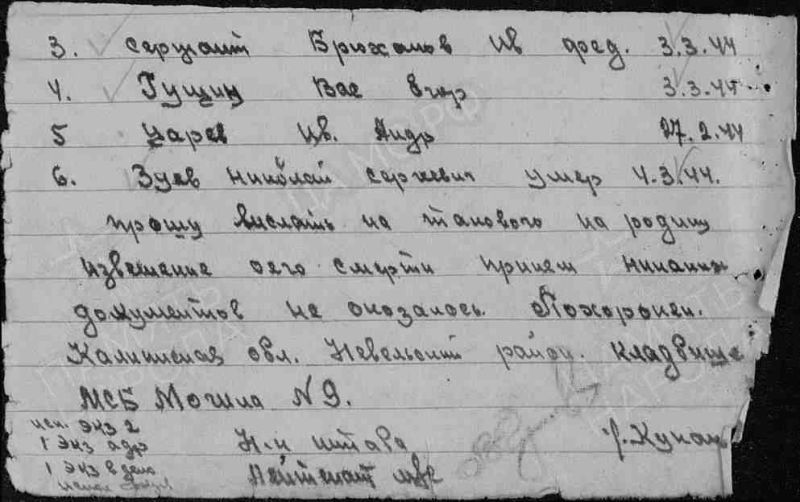 3. сержант Брюханов Ив фед. 3.3.44
4. Гущин Вас Егор 3.3.44
5 Царев Ив. Андр 27.2.44
6. Зуев Николай сергеевич умер 4.3.44.
прошу выслать на такового на родину
извешение оего смерти причем никаких
документов не оказалось. Похоронен.
Калинская обл. Невельский район. кладвище
МСБ Могила N 9.
исп. Экз 2
1 Экз адр Н-к штаба
1 Экз в дело Лейтенант